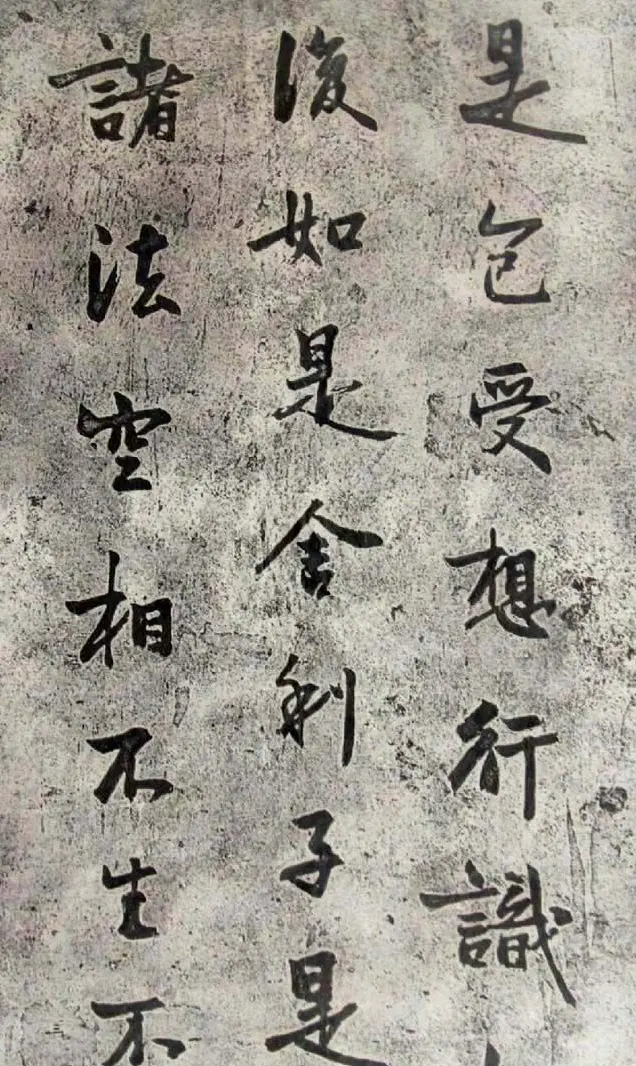 是色受想行識
復如是舍利子是
諸法空相不生不